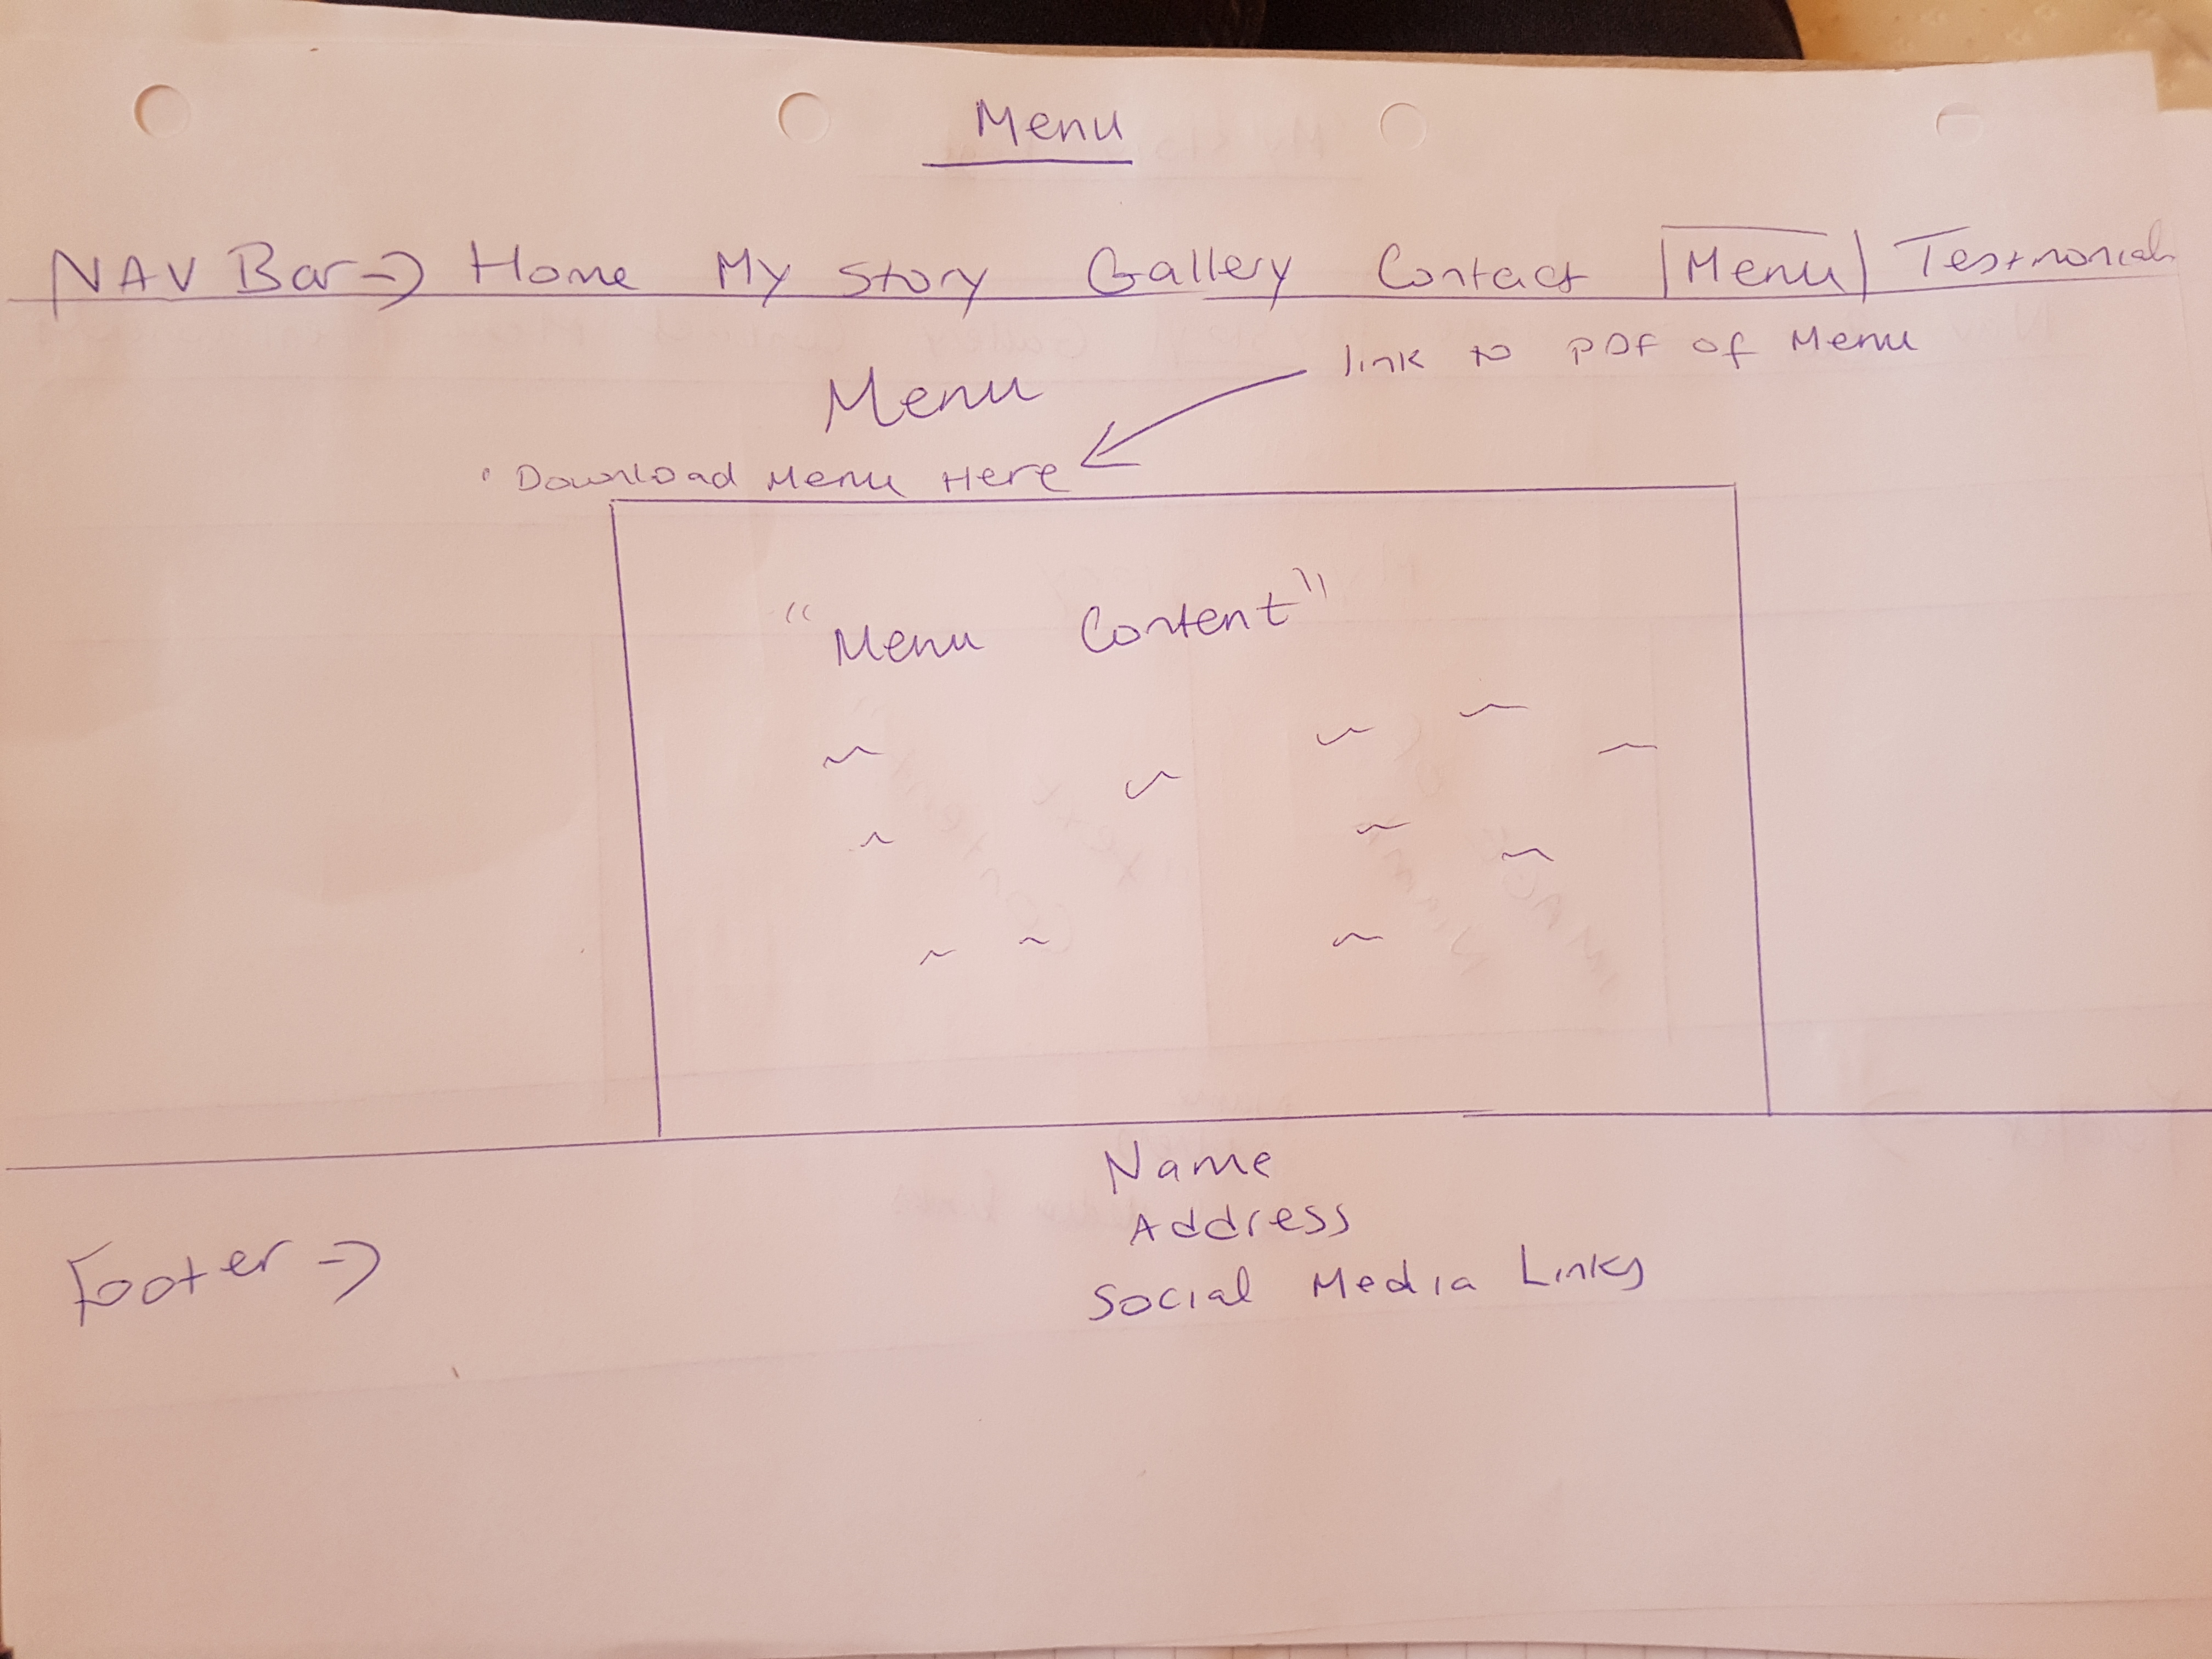 Menu
NAV Bar → Home My Story Gallery Contact Menu Testmonials
link to PDF of Menu
Menu
' Download Menu Here
" Menu Content "
Name
Address
Footer →
Social Media Links